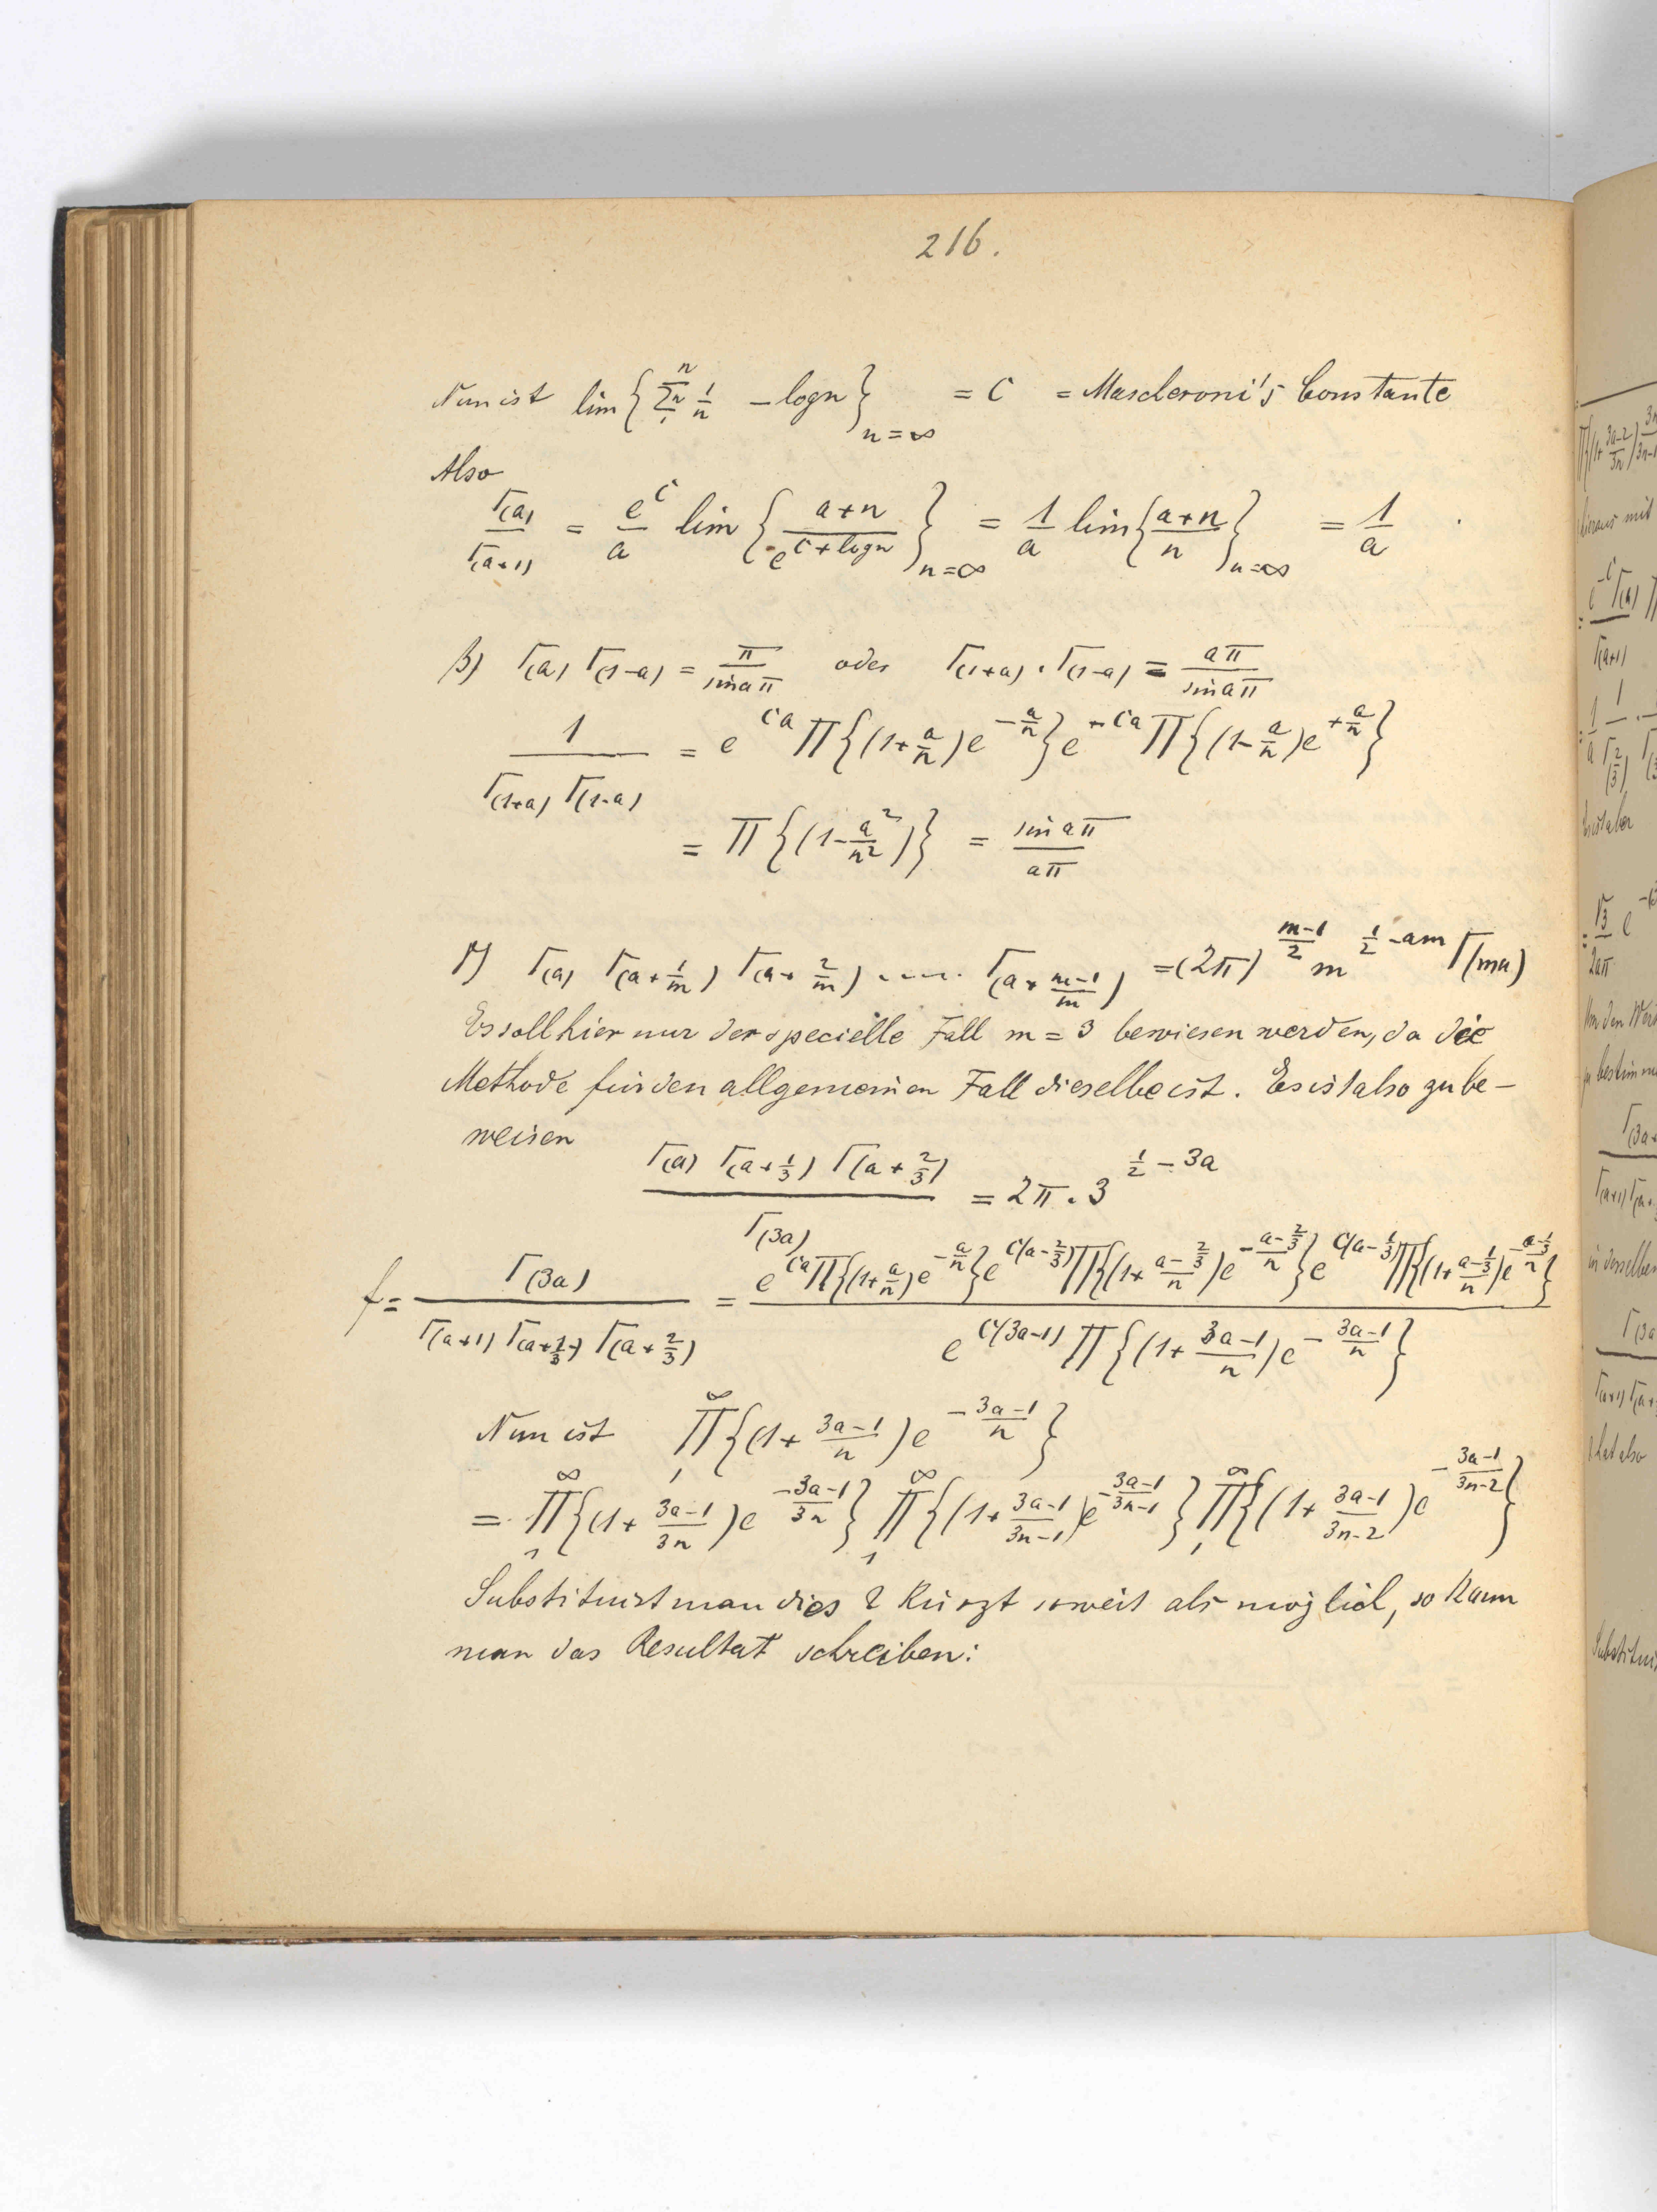 216.
Nun ist lim{∑₁ⁿₙ 1/n − log n}_{n=∞} = C = Mascheroni's Constante
Also
Γ(a)/Γ(a+1) = e^C/a lim{(a+n)/e^{C+log n}}_{n=∞} = 1/a lim{(a+n)/n}_{n=∞} = 1/a
β) Γ(a) Γ(1−a) = π/sin aπ oder Γ(1+a) . Γ(1−a) = aπ/sin aπ
1/(Γ(1+a) Γ(1−a)) = e^{Ca} Π{(1+a/n)e^{−a/n}} e^{−Ca} Π{(1−a/n)e^{+a/n}}
= Π{(1−a²/n²)} = sin aπ/aπ
γ) Γ(a) Γ(a+1/m) Γ(a+2/m) .... Γ(a+(m−1)/m) = (2π)^{(m−1)/2} m^{1/2−am} Γ(ma)
Es soll hier nur der specielle Fall m = 3 bewiesen werden, da die
Methode für den allgemeinen Fall dieselbe ist. Es ist also zu be–
weisen
Γ(a) Γ(a+1/3) Γ(a+2/3)/Γ(3a) = 2π . 3^{1/2−3a}
f = Γ(3a)/(Γ(a+1) Γ(a+1/3) Γ(a+2/3)) = e^{Ca} Π{(1+a/n)e^{−a/n}} e^{C(a−2/3)} Π{(1+(a−2/3)/n)e^{−(a−2/3)/n}} e^{C(a−1/3)} Π{(1+(a−1/3)/n)e^{−(a−1/3)/n}} / e^{C(3a−1)} Π{(1+(3a−1)/n)e^{−(3a−1)/n}}
Nun ist Π₁^∞{(1+(3a−1)/n)e^{−(3a−1)/n}}
= Π₁^∞{(1+(3a−1)/3n)e^{−(3a−1)/3n}} Π₁^∞{(1+(3a−1)/(3n−1))e^{−(3a−1)/(3n−1)}} Π₁^∞{(1+(3a−1)/(3n−2))e^{−(3a−1)/(3n−2)}}
Substituirt man dies & kürzt soweit als möglich, so kann
man das Resultat schreiben: